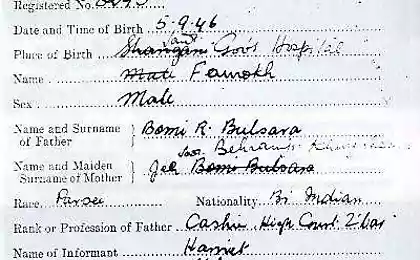 Registered No.
Date and Time of Birth 5-9.46
Place of Birth Govt Hospital
Name Male Farrokh
Sex Male
Name and Surname of Father } Bomi R. Bulsara
Name and Maiden Surname of Mother } Jer Bomi Bulsara
Race Parsee Nationality Br Indian
Rank or Profession of Father Cashier High Court Z'bar
Name of Informant Harriet